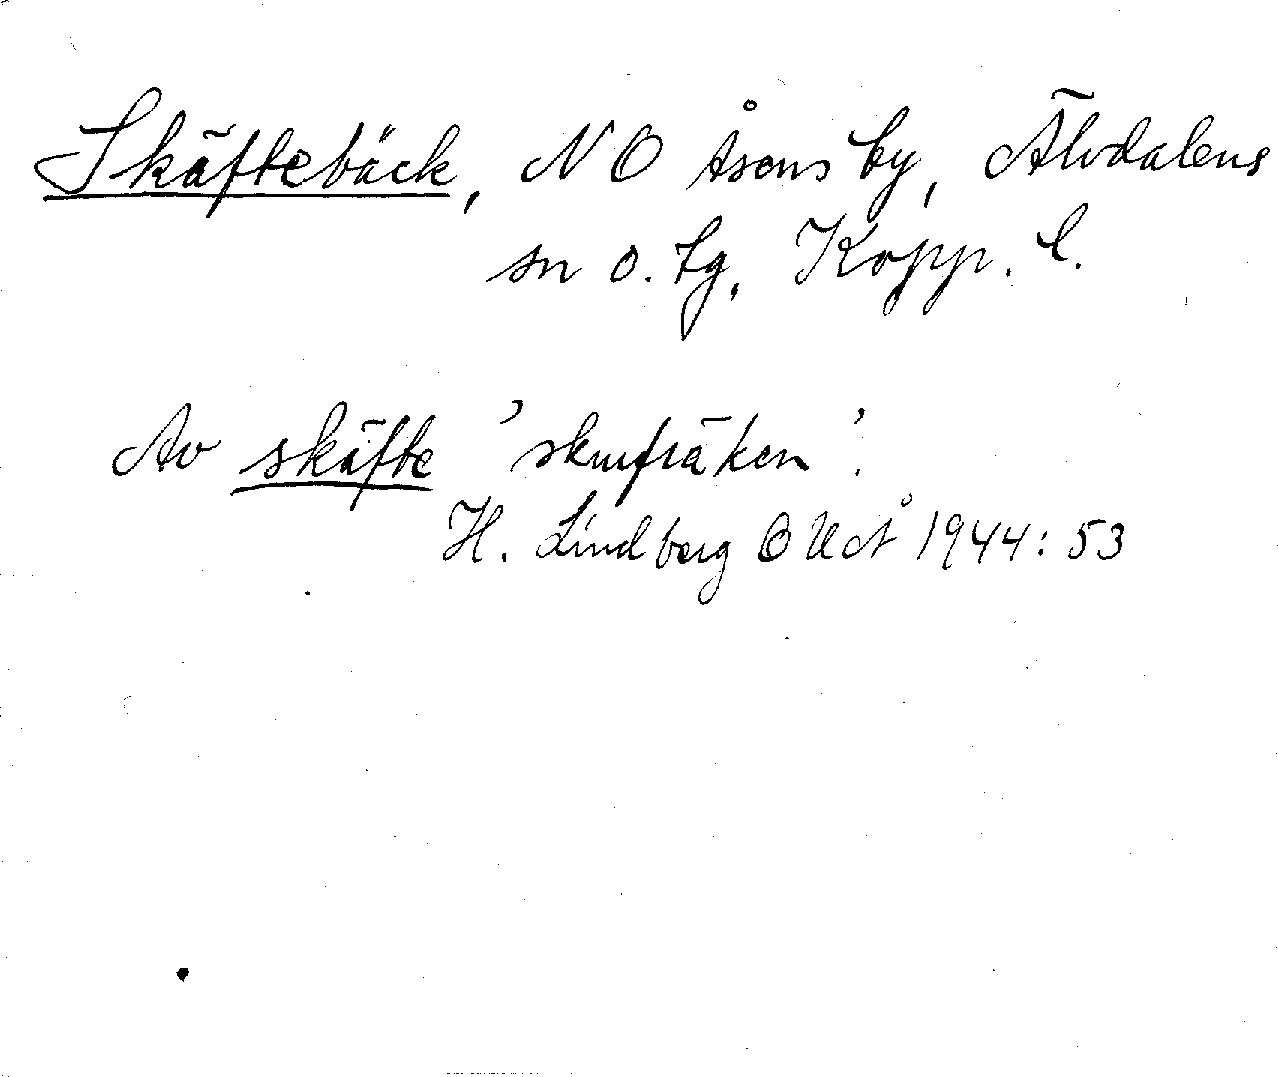 Skäftebäck, NO Åsens by, Älvdalens
sn o. tg, Kopp. l.
Av skäfte 'skurfräken'.
H. Lindberg OUÅ 1944: 53